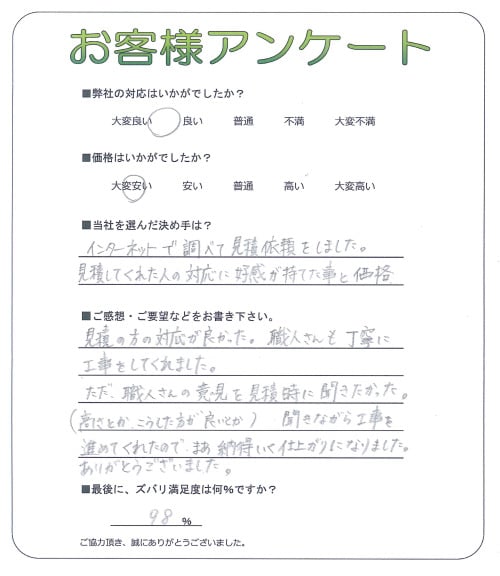 お客様アンケート
■弊社の対応はいかがでしたか？
大変良い 良い 普通 不満 大変不満
■価格はいかがでしたか？
大変安い 安い 普通 高い 大変高い
■当社を選んだ決め手は？
インターネットで調べて見積依頼をしました。
見積してくれた人の対応に好感が持てた事と価格
■ご感想・ご要望などをお書き下さい。
見積の方の対応が良かった。職人さんも丁寧に
工事をしてくれました。
ただ、職人さんの意見を見積時に聞きたかった。
(高さとか、こうした方が良いとか) 聞きながら工事を
進めてくれたので、まあ納得いく仕上がりになりました。
ありがとうございました。
■最後に、ズバリ満足度は何％ですか？
98 %
ご協力頂き、誠にありがとうございました。